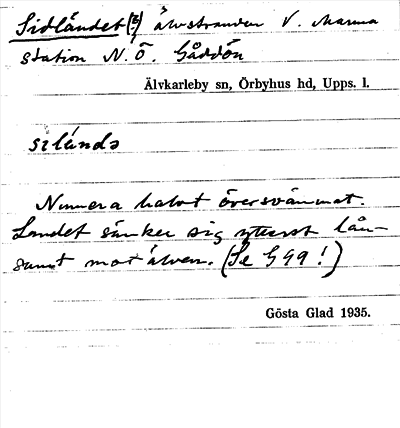 Sidländet (?) älvstranden V. Marma
station N.Ö. Gåddön
Älvkarleby sn, Örbyhus hd, Upps. l.
Numera halvt översvämmat.
Landet sänker sig ytterst lån-
samt mot älven. (Se G 99!)
Gösta Glad 1935.